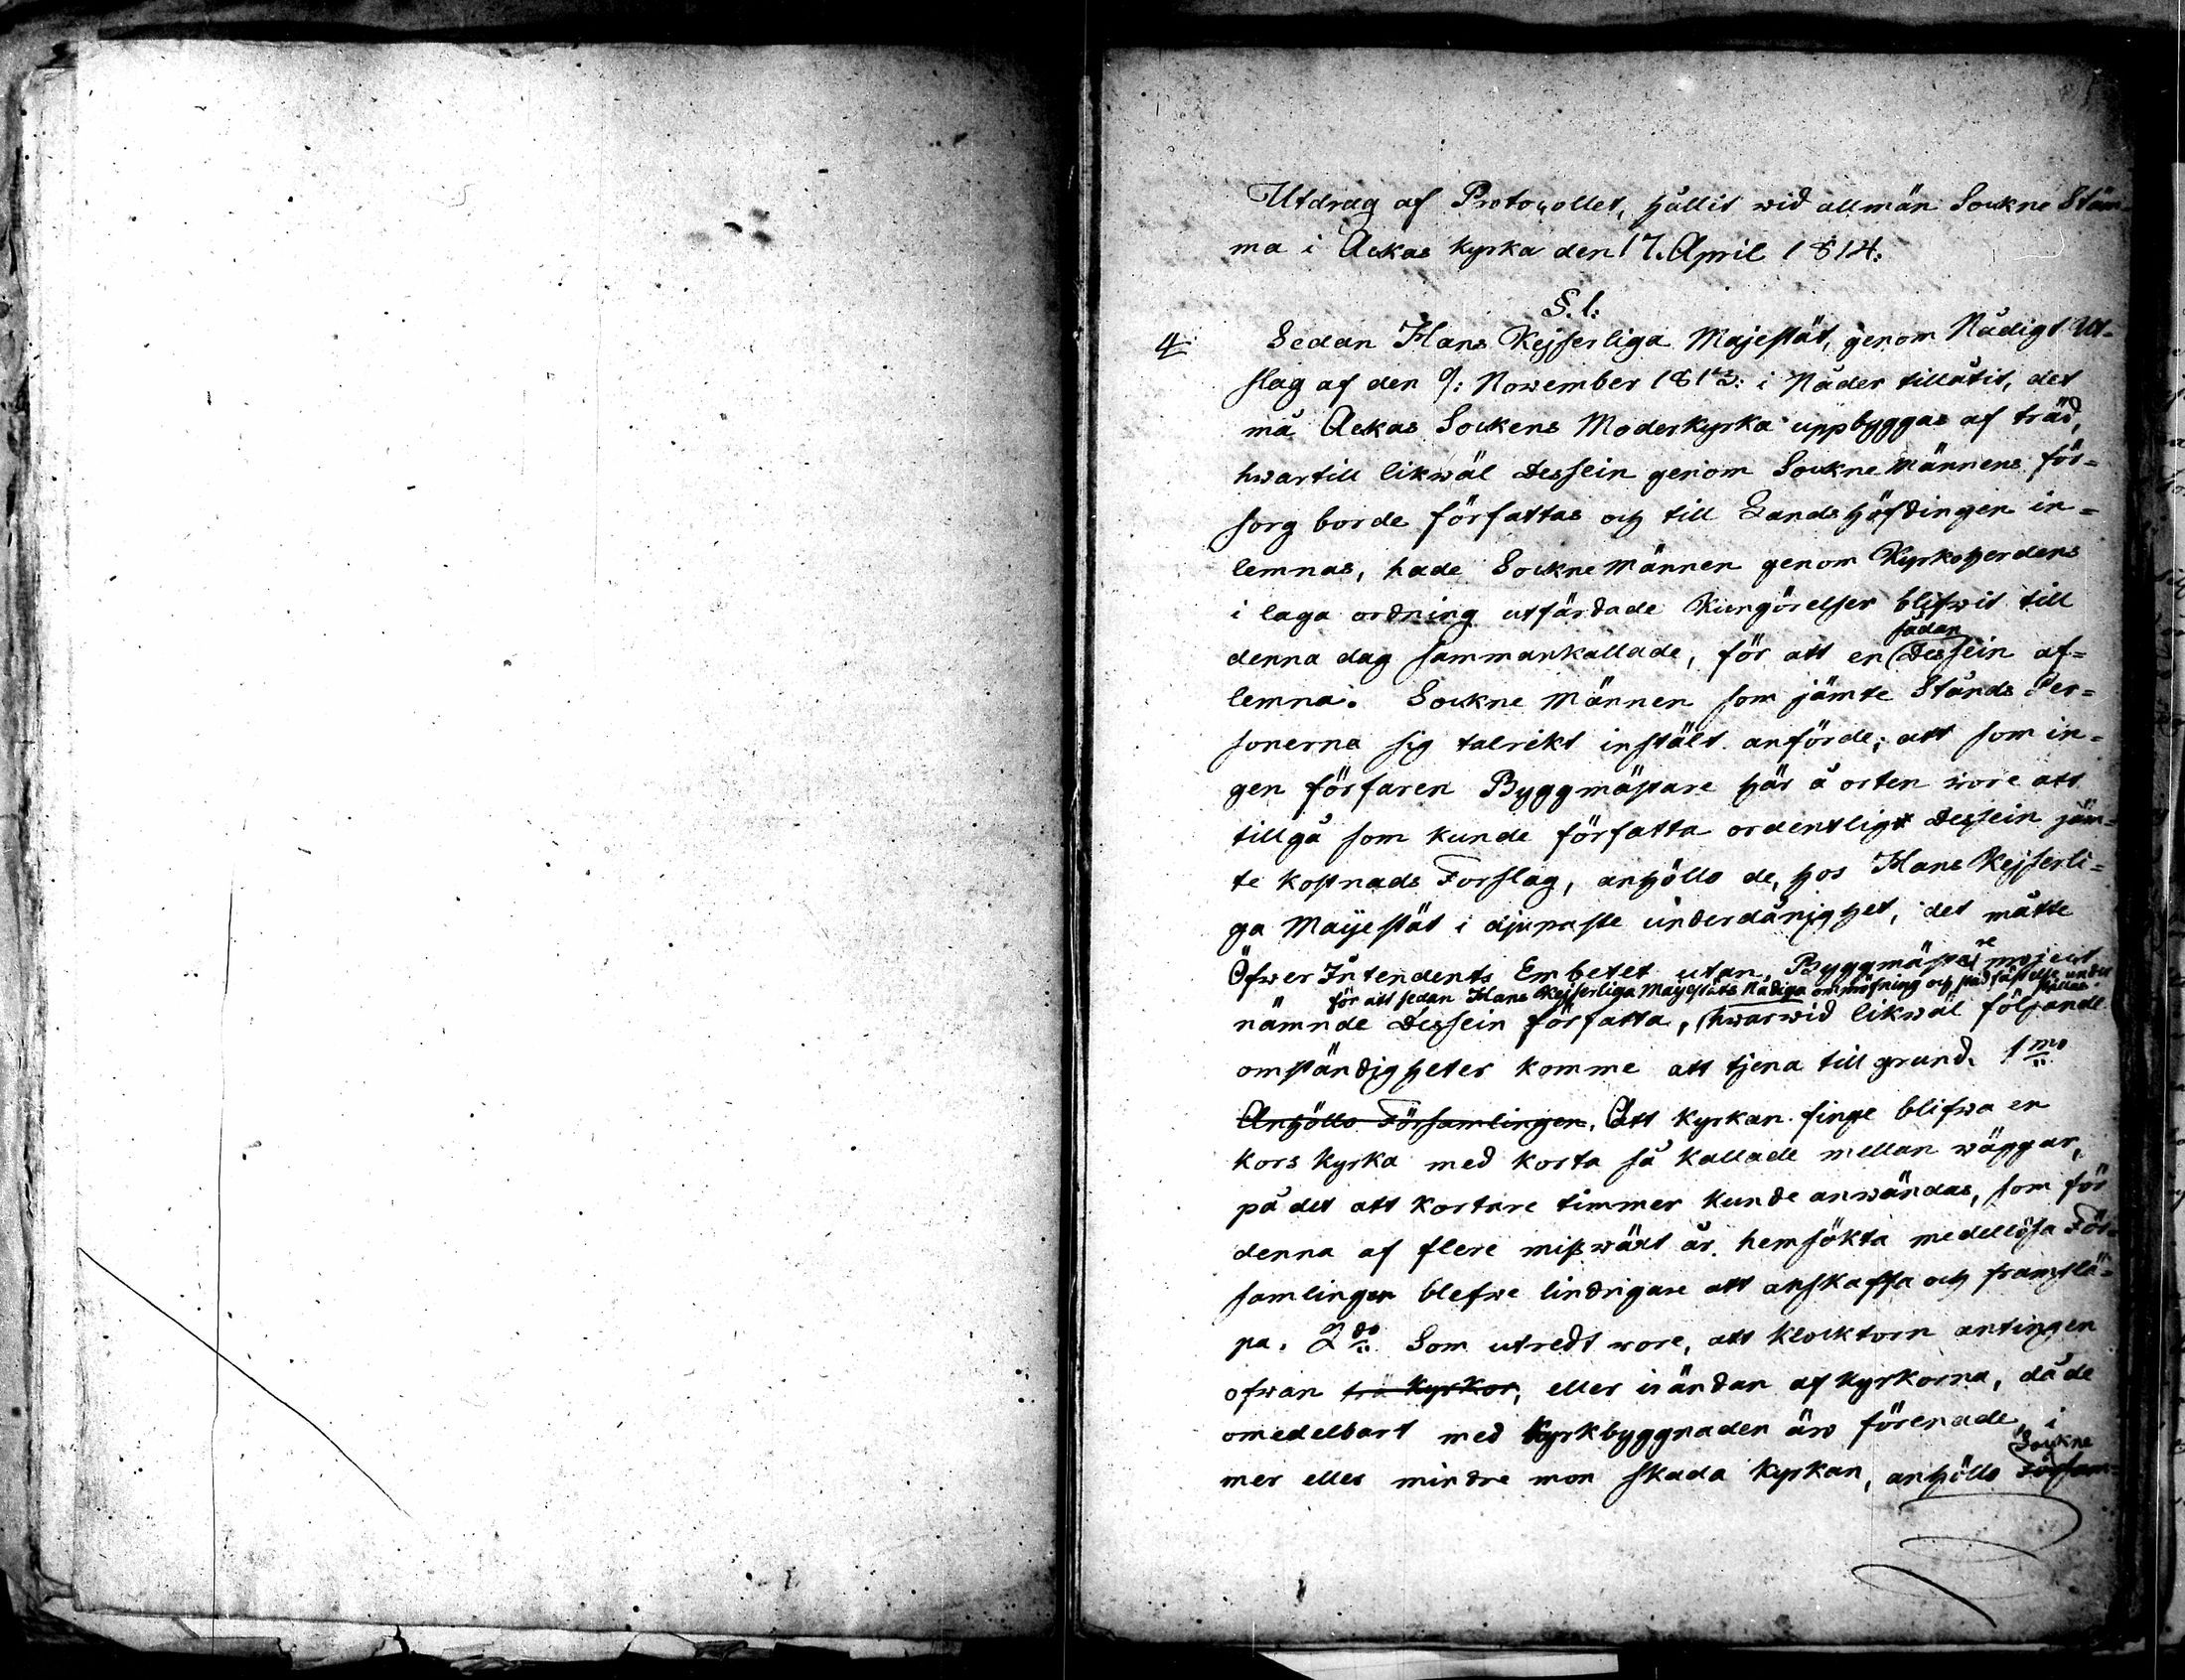 Utdrag af Protocollet, hållit wid allmän Sockne Stäm-
ma i Ackas kyrka den 17. April 1814.
§. 1.
4 Sedan Hans Kejserliga Majestät, genom Nådigt Ut-
slag af den 9: November 1813: i Nåder tillåtit, det
må Ackas Sockens Moderkyrka uppbyggas af träd,
hwartill likwäl Dessein genom Sockne Männens för-
sorg borde författas och till Landshöfdingen in-
lemnas, hade Sockne Männen genom Kyrkoherdens
i laga ordning utfärdade Kungörelser blifwit till
sådan
denna dag sammankallade, för att en Dessein af-
lemna. Sockne Männen som jämte Stånds Per-
sonerna sig talrikt instält anförde; att som in-
gen förfaren Byggmästare här å orten wore att
tillgå som kunde författa ordentligt Dessein jäm-
te kostnads Forslag, anhöllo de, hos Hans Kejserli-
ga Maijestät i djupaste underdånighet, det måtte
Öfwer Intendents Embetet utan Byggmästare
för att sedan Hans Kejserliga Maijestäts Nådiga ompröfning och stadfästelse under
nämnde Dessein författa, hwarwid likwäl följande
omständigheter komme att tjena till grund. 1mo
Anhöllo Församlingen, Att kyrkan finge blifwa en
kors kyrka med korta så kallade mellan wäggar,
på det att kortare timmer kunde anwändas, som för
denna af flere missväxt år hemsökta medellösa För-
samlingen blefwe lindrigare att anskaffa och framslä-
pa. 2do Som utredt wore, att klocktorn antingen
ofwan trä kyrkor, eller i ändan af kyrkorna, då de
omedelbart med kyrkbyggnaden äro förenade, i
Sockne
mer eller mindre mon skada kyrkan, anhöllo Försam-